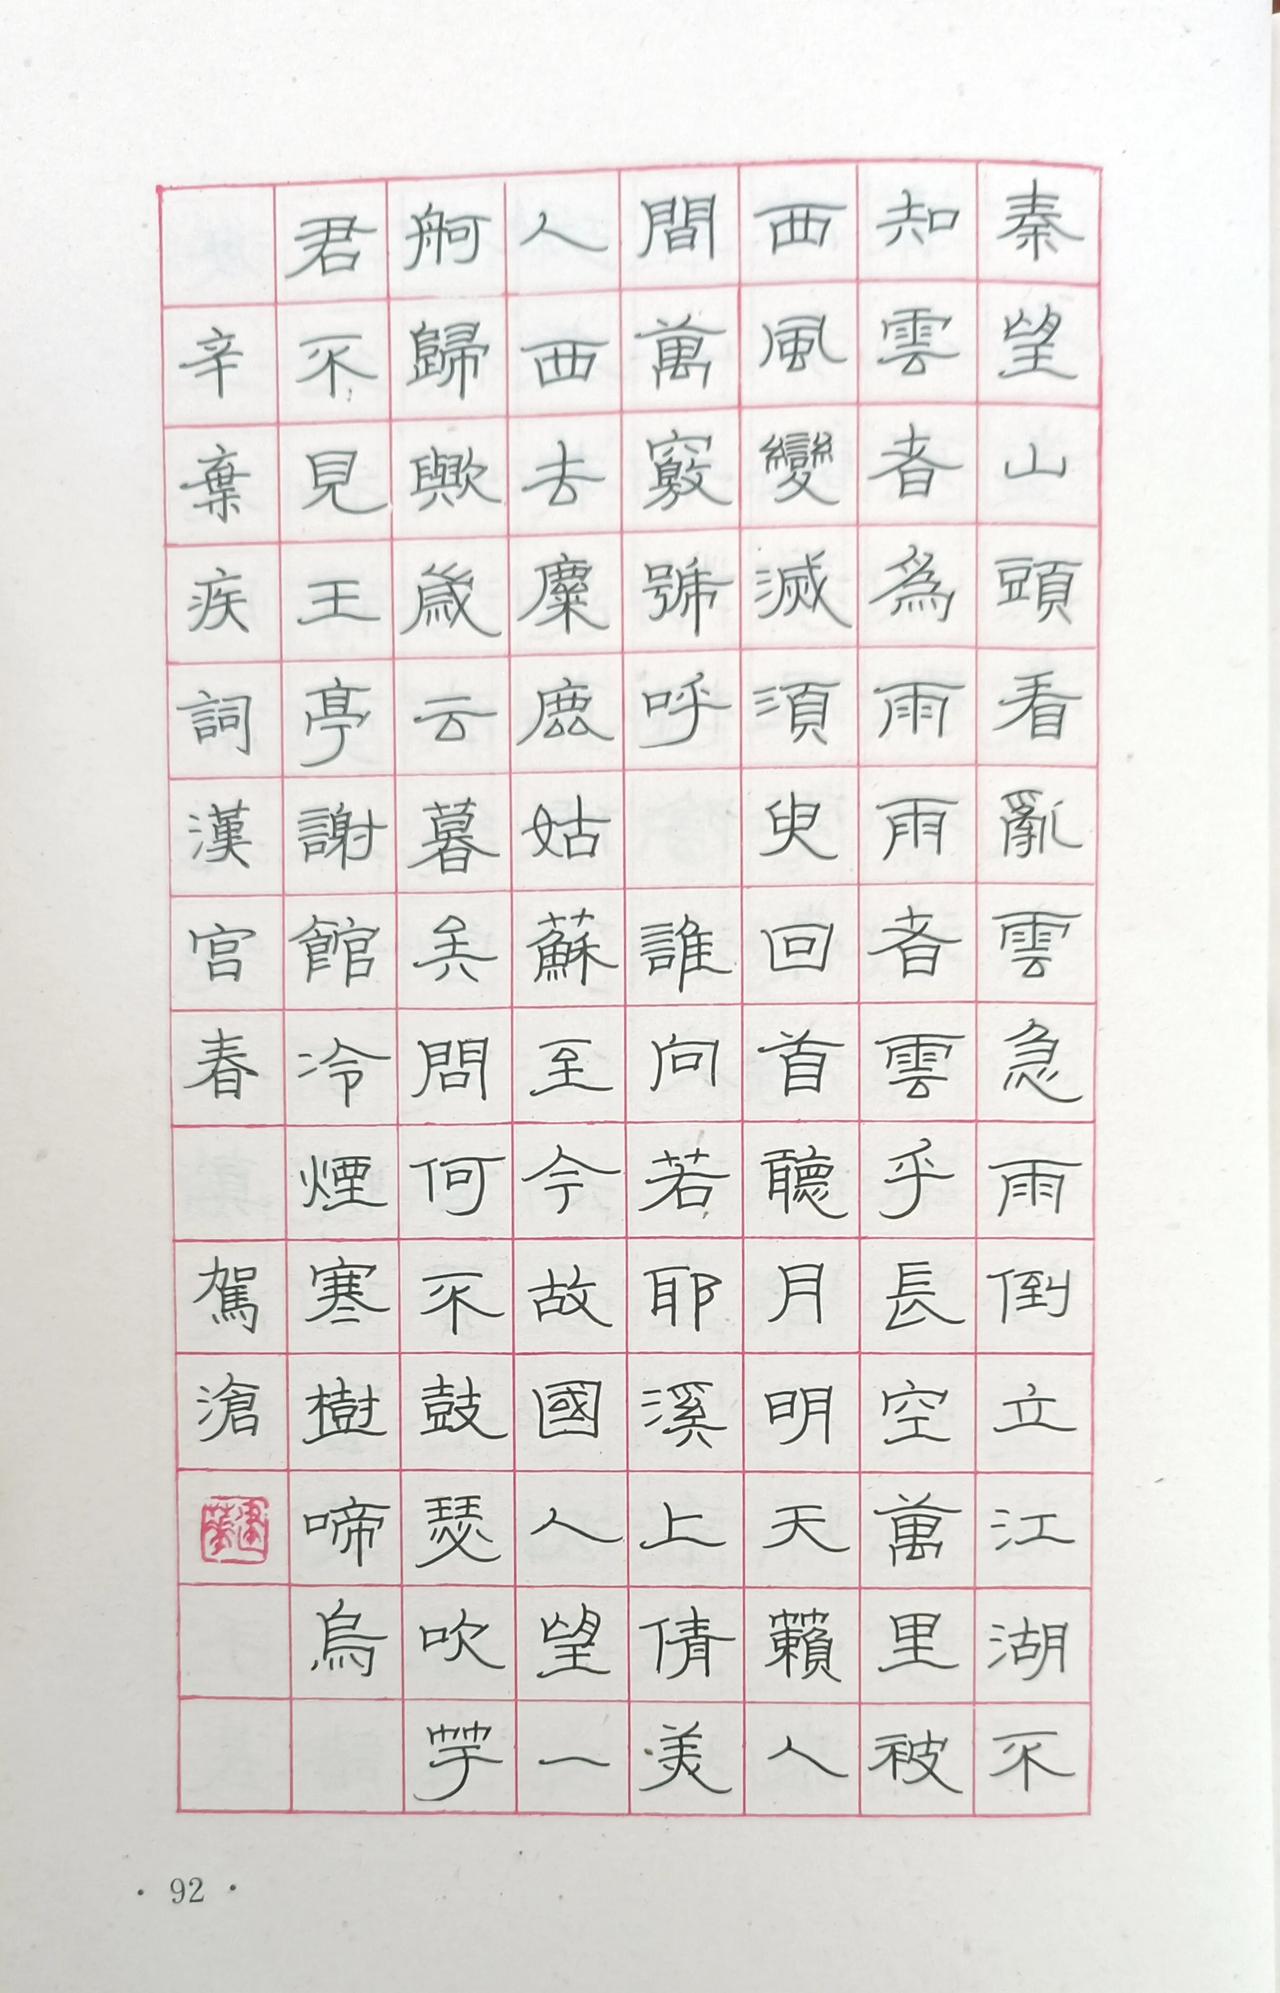 秦望山頭看亂雲急雨倒立江湖不
知雲者為雨雨者雲乎長空萬里被
西風變滅須臾回首聽月明天籟人
間萬竅號呼 誰向若耶溪上倩美
人西去麋鹿姑蘇至今故國人望一
舸歸歟歲云暮矣問何不鼓瑟吹竽
君不見王亭謝館冷煙寒樹啼烏
辛棄疾詞漢宮春 駕滄
· 92 ·